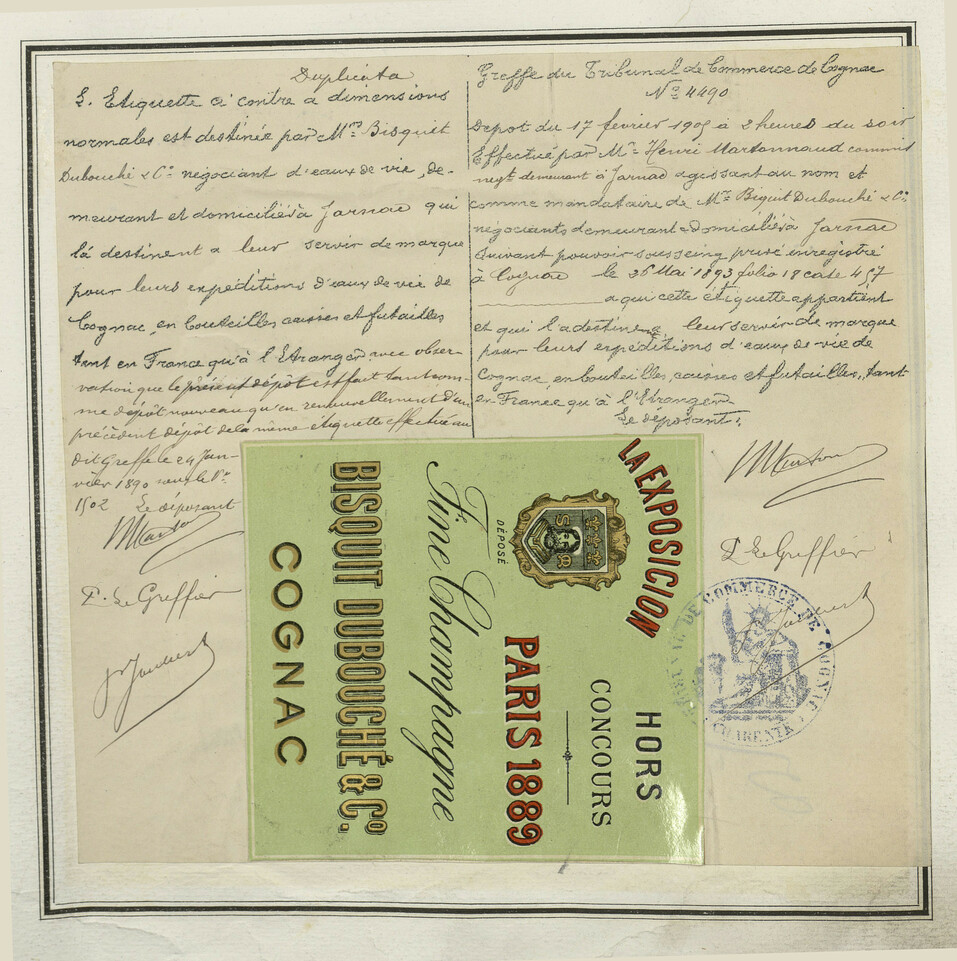 Duplicata
L. Etiquette ci contre a dimensions
normales est destinée par Mrs Bisquit
Dubouché & Cie négociant d'eaux de vie, de-
meurant et domiciliés à Jarnac qui
la destinent a leur servir de marque
pour leurs expéditions d'eaux de vie de
Cognac, en bouteilles caisses et futailles
tant en France qu'à l'Etranger avec obser-
vation que le présent dépôt est fait tant com-
me dépôt nouveau qu'en renouvellement d'un
précédent dépôt de la même étiquette effectué au
dit Greffe le 24 Jan-
vier 1890 sous le No
1502 Le déposant
P. Le Greffier
Greffe du Tribunal de Commerce de Cognac
No 4490
Depot du 17 février 1905 à 2 heures du soir
Effectué par Mr Henri Martonnaud commis
negt demeurant à Jarnac agissant au nom et
comme mandataire de Mrs Biquit Dubouché & Cie
négociants demeurant & domiciliés à Jarnac
suivant pouvoir sous seing privé enregistré
à Cognac le 26 Mai 1893 folio 18 case 457
a qui cette étiquette appartient
et qui l'a destine a leur servir de marque
pour leurs expéditions d'eaux de vie de
Cognac en bouteilles, caisses et futailles, tant
en France qu'à l'Etranger
Le déposant,
P. Le Greffier
DE COMMERCE DE COGNAC
CHARENTE
HORS
CONCOURS
LA EXPOSICION
PARIS 1889
DÉPOSÉ
Fine Champagne
BISQUIT DUBOUCHÉ & Co.
COGNAC